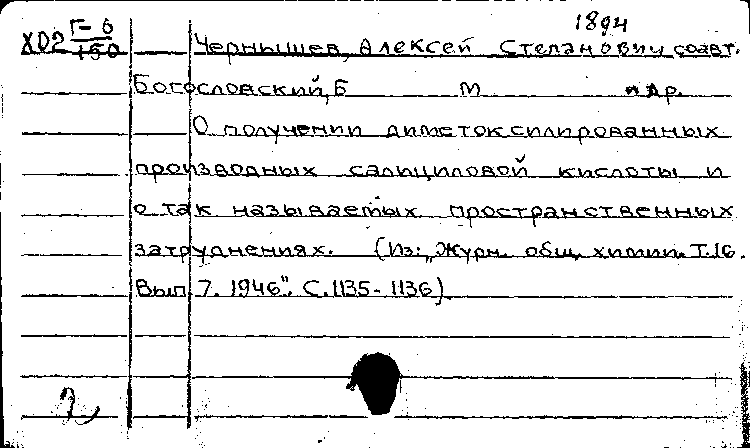 1894
Х02 Г-6/150 Чернышев, Алексей Степанович соавт.
Богословский, Б М и др.
О получении диметоксилированных
производных салициловой кислоты и
о так называемых пространственных
затруднениях. (Из: „Журн. общ. химии. Т.16.
Вып. 7. 1946". С.1135-1136).